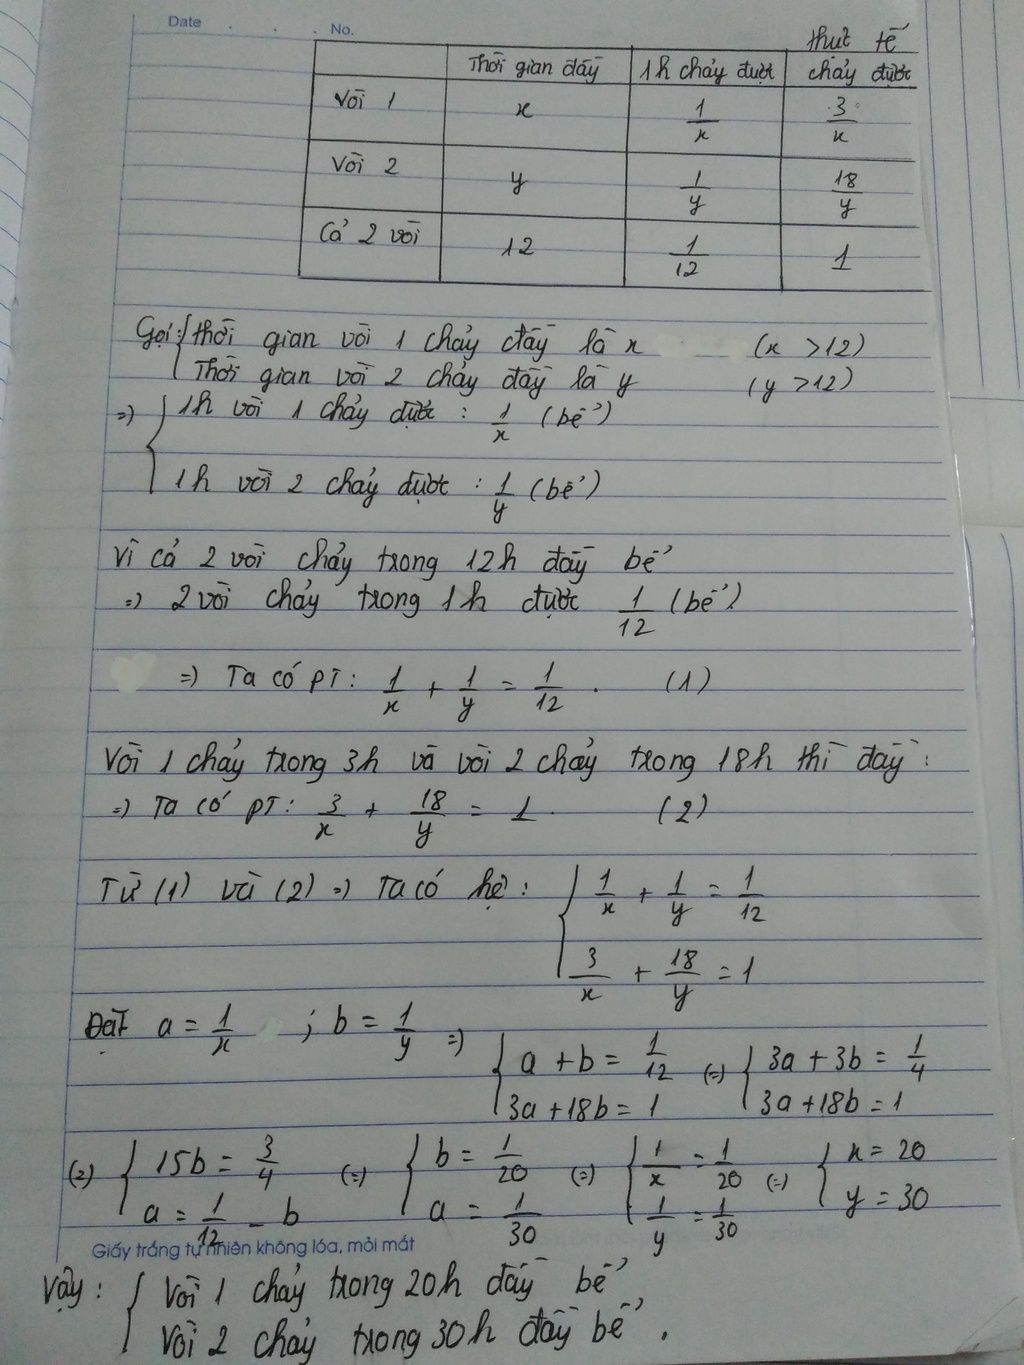 Date . . . No.
thực tế
Thời gian đầy 1h chảy được chảy được
Vòi 1 x 1/x 3/x
Vòi 2 y 1/y 18/y
Cả 2 vòi 12 1/12 1
Gọi: { thời gian vòi 1 chảy đầy là x (x > 12)
Thời gian vòi 2 chảy đầy là y (y > 12)
=> { 1h vòi 1 chảy được : 1/x (bể)
1h vòi 2 chảy được : 1/y (bể)
Vì cả 2 vòi chảy trong 12h đầy bể
=> 2 vòi chảy trong 1h được 1/12 (bể)
=> Ta có PT: 1/x + 1/y = 1/12 . (1)
Vòi 1 chảy trong 3h và vòi 2 chảy trong 18h thì đầy :
=> Ta có PT: 3/x + 18/y = 1 . (2)
Từ (1) và (2) => Ta có hệ : { 1/x + 1/y = 1/12
3/x + 18/y = 1
Đặt a = 1/x ; b = 1/y => { a + b = 1/12 (=) { 3a + 3b = 1/4
3a + 18b = 1 3a + 18b = 1
(=) { 15b = 3/4 (=) { b = 1/20 (=) { 1/x = 1/20 (=) { x = 20
a = 1/12 - b a = 1/30 1/y = 1/30 y = 30
Giấy trắng tự nhiên không lóa, mỏi mắt
Vậy : { Vòi 1 chảy trong 20h đầy bể
Vòi 2 chảy trong 30h đầy bể .